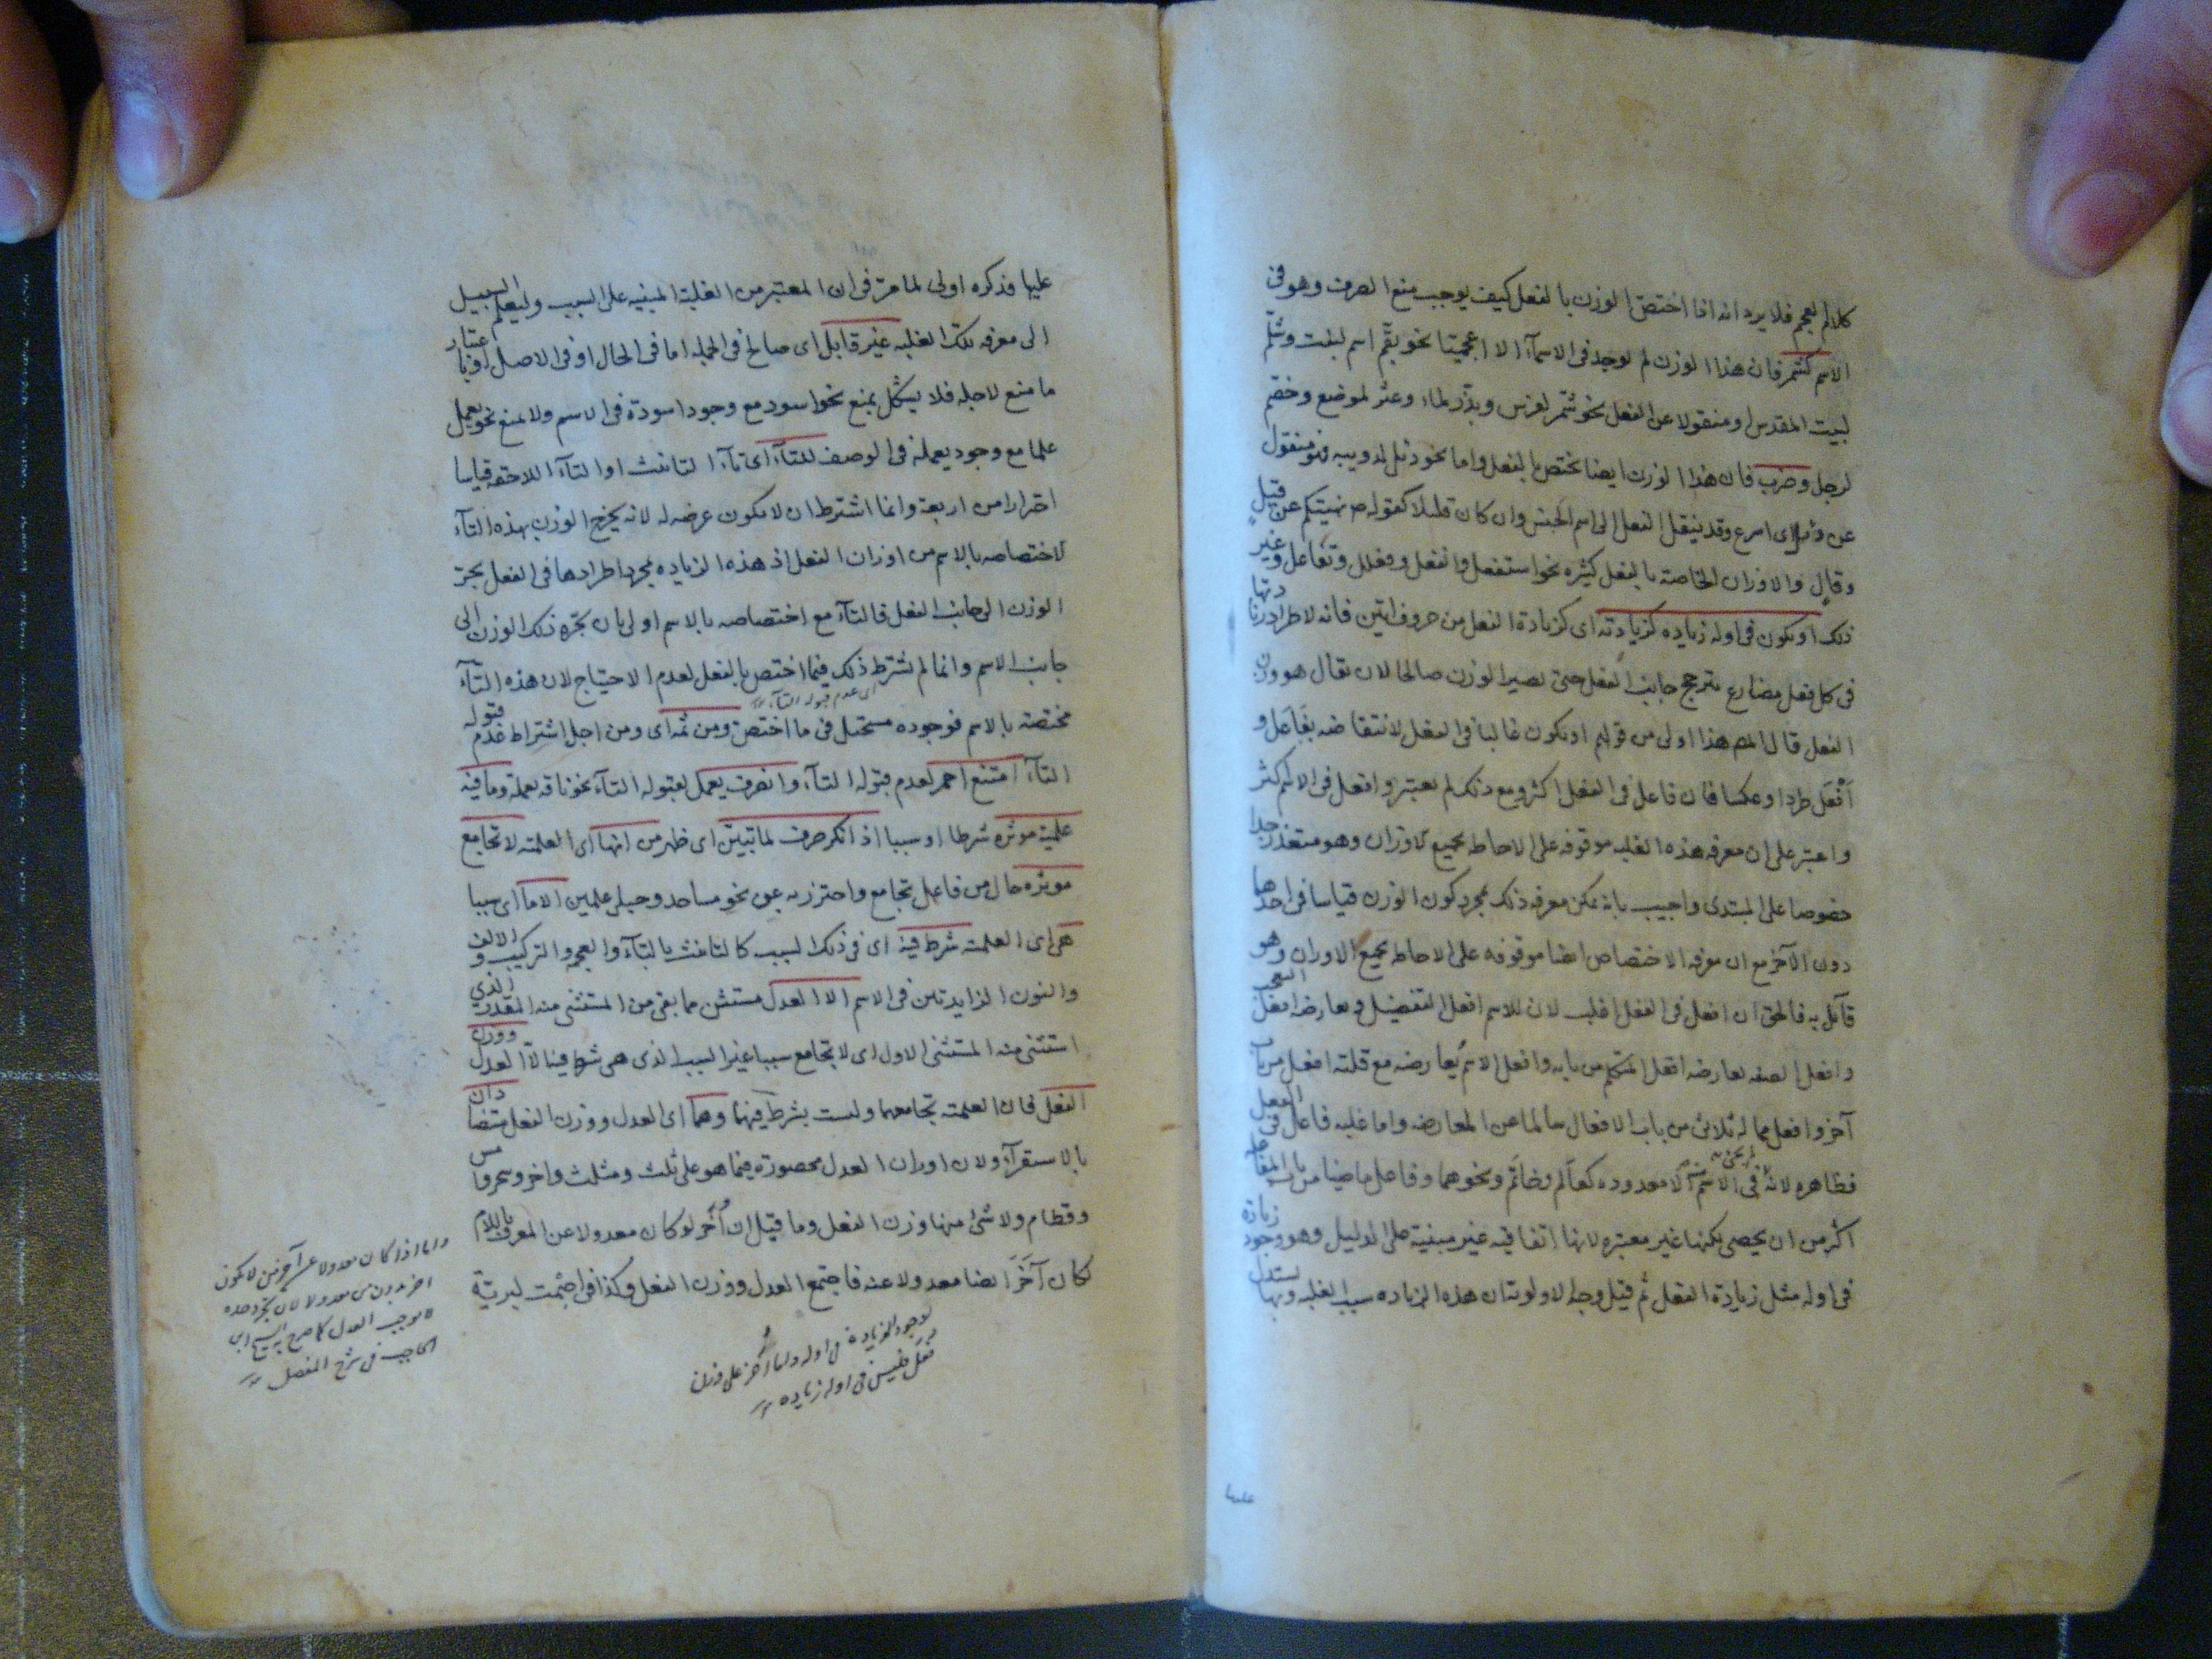 كلام العجم فلا يرد انه اذا اختص الوزن بالفعل كيف يوجب منع الصرف وهو في
الاسم كشمر فان هذا الوزن لم يوجد في الاسماء الا اعجميا نحو بقم اسم لنبت وشلم
لبيت المقدس او منقولا عن الفعل نحو شمر لفرس وبذر لماء وعثر لموضع وخضم
لرجل وضرب فان هذا الوزن ايضا يختص بالفعل واما نحو دئل لدويبة فمنقول
عن دئل اى اسرع وقد ينقل الفعل الى اسم الجنس وان كان قليلا كقوله نهيتكم عن قيل
وقال والاوزان الخاصة بالفعل كثيره نحو استفعل وانفعل وفعلل وتفاعل وغير
ذلك او يكون فى اوله زياده كزيادته اى كزيادة الفعل من حروف اتين فانه لاطراد زيادتها
فى كل فعل مضارع يترجح جانب الفعل حتى يصير الوزن صالحا لان يقال هو وزن
الفعل قال المص هذا اولى من قولهم او يكون غالبا فى الفعل لانتقاضه بفاعل و
افعل طردا وعكسا فان فاعل فى الفعل اكثر ومع ذلك لم يعتبر وافعل فى الاسم اكثر
واعتبر على ان معرفه هذه الغلبه موقوفه على الاحاطه بجميع الاوزان وهو متعذر جدا
خصوصا على المبتدى واجيب بانه يمكن معرفه ذلك بمجرد كون الوزن قياسا فى احدهما
دون الآخر مع ان معرفه الاختصاص ايضا موقوفه على الاحاطه بجميع الاوزان وهو
قائل به فالحق ان افعل فى الفعل اغلب لان للاسم افعل التفضيل ويعارضه افعل التعجب
وافعل الصفه يعارضه افعل المتكلم من بابه وافعل الاسم يعارضه مع قلته افعل من باب
آخر وافعل مما له ثلاثى من باب الافعال سالما عن المعارضه واما غلبه فاعل فى الفعل
فظاهره لانه فى الاسم لا معدوده كعالم وخاتم ونحوهما وفاعل ماضيا من باب المفاعله
اكثر من ان يحصى لكنها غير معتبره لانها اتفاقيه غير مبنية على الدليل وهو وجود زياده
فى اوله مثل زيادة الفعل ثم قيل وجه الاولويه ان هذه الزياده سبب الغلبه وبها يستدل
عليها
عليها فذكره اولى لما مر فى ان المعتبر من الغلبة المبنيه على السبب وليعلم السبيل
الى معرفه تلك الغلبه غير قابل اى صالح فى الجمله اما فى الحال او فى الاصل او باعتبار
ما منع لاجله فلا يشكل بمنع نحو اسود مع وجود اسودة فى الاسم ولا بمنع نحو يعمل
علما مع وجود يعملة فى الوصف للتاء اى تاء التانيث او التاء اللاحقه قياسا
احترازا من اربعة وانما اشترط ان لا يكون عرضه له لانه يخرج الوزن بهذه التاء
لاختصاصه بالاسم من اوزان الفعل اذ هذه الزياده بمجرد اطرادها فى الفعل يجر
الوزن الى جانب الفعل فالتاء مع اختصاصه بالاسم اولى بان يجره ذلك الوزن الى
جانب الاسم وانما لم يشترط ذلك فيما اختص بالفعل لعدم الاحتياج لان هذه التاء
اى عدم قبوله التاء
مختصة بالاسم فوجوده مستحيل فى ما اختص ومن ثمه اى ومن اجل اشتراط عدم قبوله
التاء امتنع احمر لعدم قبوله التاء وانصرف يعمل لقبوله التاء نحو ناقه يعملة وما فيه
علمية موثره شرطا او سببا اذا نكر صرف لما تبين اى ظهر من انها اى العلمية لا تجامع
موثره حال من فاعل تجامع واحترز به عن نحو مساجد وحبلى علمين الا ما اى سببا
هى اى العلمية شرط فيه اى فى ذلك السبب كالتانيث بالتاء والعجمه والتركيب والالف
والنون الزايدتين فى الاسم الا العدل مستثنى مما بقى من المستثنى منه المقدر الذى
استثنى منه المستثنى الاول اى لا تجامع سببا غير السبب الذى هى شرط فيه الا العدل ووزن
الفعل فان العلمية تجامعهما وليست بشرط فيهما وهما اى العدل ووزن الفعل متضادان
بالاستقراء ولان اوزان العدل محصورة فيما هو على ثلث ومثلث واخر وسحر وامس
وقطام ولا شئ منها وزن الفعل وما قيل ان اُخَر لو كان معدولا عن المعرف باللام
لكان آخَر ايضا معدولا عنه فاجتمع العدل ووزن الفعل وكذا فى
لوجود الزيادة فى اوله واما اُخر على وزن
فعل فليس فى اوله زياده
واما اذا كان معدولا عن آخر من لا يكون
الحاجب فى شرح المفصل